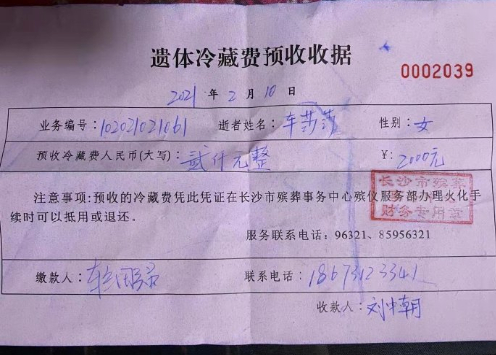 遗体冷藏费预收收据
0002039
2021 年 2 月 10 日
业务编号: 102021021061 逝者姓名: 车莎莎 性别: 女
预收冷藏费人民币(大写): 贰仟元整 ¥: 2000元
注意事项:预收的冷藏费凭此凭证在长沙市殡葬事务中心殡仪服务部办理火化手
续时可以抵用或退还。
长沙市殡
财务专用章
服务联系电话: 96321、85956321
缴款人: 车 联系电话: 18673123341
收款人: 刘中朝